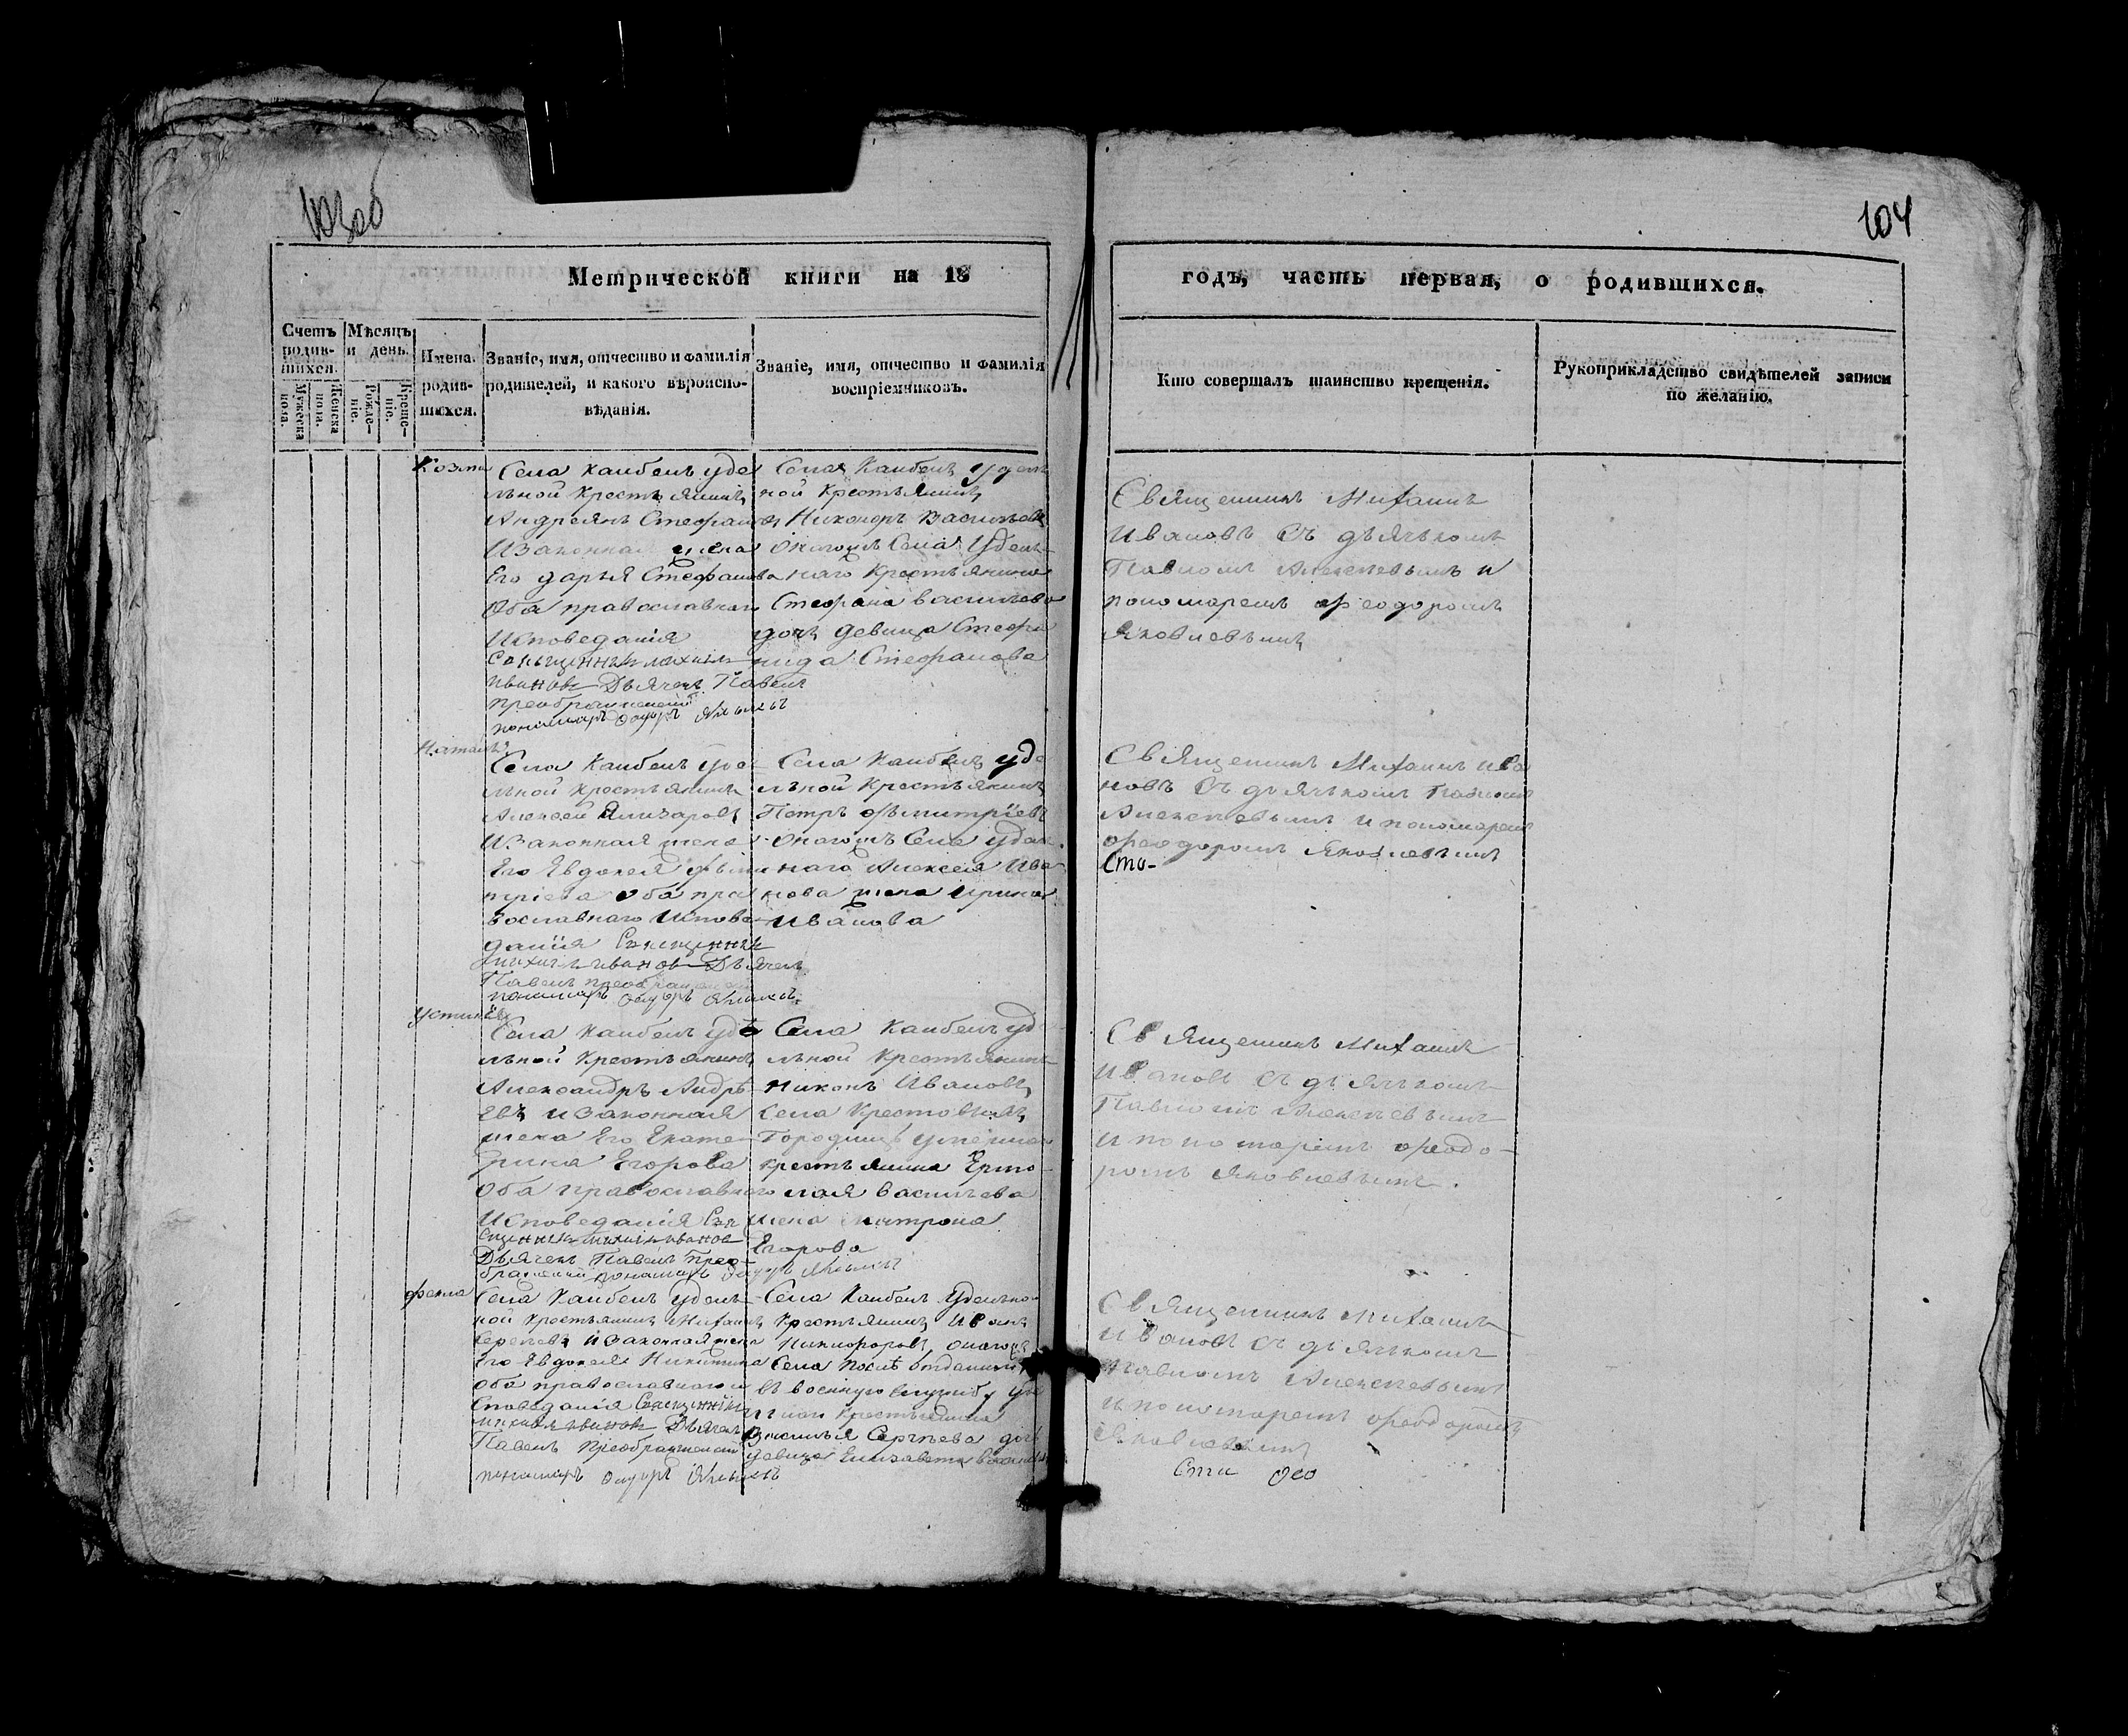 103об
104
Метрической книги на 18
годъ, часть первая, о родившихся.
Счетъ родив-шихся.
Мужеска пола.
Женска пола.
Мѣсяцъ и день.
Рожде-ніе.
Креще-ніе.
Имена родив-шихся.
Званіе, имя, отчество и фамилія
родителей, и какого вѣроиспо-
вѣданія.
Званіе, имя, отчество и фамилія
воспріемниковъ.
Кто совершалъ таинство крещенія.
Рукоприкладство свидѣтелей записи
по желанію.
Козма
Села Каибелъ уде
льной Крестьянинъ
Андреянъ Стефанов
Изаконная жена
Его дарья Стефанова
Оба православнаго
Исповеданія
Священникъ михаилъ
ивановъ Дьячекъ Павелъ
преображенский
Села Каибелъ Удель
ной Крестьянинъ
Никоноръ Васильевъ
Оногожъ Села Удель-
наго Крестьянина
Стефана васильева
дочь девица Стефа
нида Стефанова
Священникъ Михаилъ
Ивановъ Съ дьячькомъ
Павломъ Алексеевымъ и
пономаремъ Феодоромъ
Яковлевымъ
Наталья
Села Каибелъ Уде
льной Крестьянинъ
Алексей
Изаконная жена
Его Евдокея дьми
тріева оба пра
вославнаго Испове
данія Священникъ
михаилъ ивановъ Дьячекъ
Павелъ преображенский
Села Каибелъ уде
льной Крестьянинъ
Петръ дьмитріевъ
Оногожъ Села удель
наго Алексея Ива
нова жена Ирина
Иванова
Священникъ Михаилъ Ива
новъ Съ дьячькомъ Павломъ
Алексеевымъ и пономаремъ
Феодоромъ Яковлевымъ
Сто-
Устинья
Села Каибелъ уде
льной Крестьянинъ
Александръ Андре
евъ изаконная
жена Его Екате-
рина Егорова
Оба православного
Исповеданія Свя
щенникъ михаилъ ивановъ
Дьячекъ Павелъ Прео-
Села Каибелъ уд
льной Крестьянинъ
Никонъ Ивановъ
Села Крестовыхъ
Городищъ умершаго
крестьянина Ермо-
лая васильева
жена матрона
Егорова
Священникъ Михаилъ
Ивановъ Съ дьячькомъ
Павломъ Алексеевымъ
и пономаремъ Феодо-
ромъ Яковлевымъ.
Фекла
Села Каибелъ Удель
ной Крестьянинъ Михаилъ
Сергеевъ изаконная жена
Его Евдокея Никитина
оба православнаго и
споведанія Священникъ
михаилъ ивановъ Дьячекъ
Павелъ Преображенский
Села Каибелъ Удельно
Крестьянинъ Иванъ
Никифоровъ оногожъ
Села послѣ отданного
въ военную службу уде
льной крестьянина
Василья Сергѣева дочь
девица Елизавета
Священникъ Михаилъ
Ивановъ Съ дьячькомъ
Павломъ Алексеевымъ
и пономаремъ Феодоромъ
Яковлевымъ